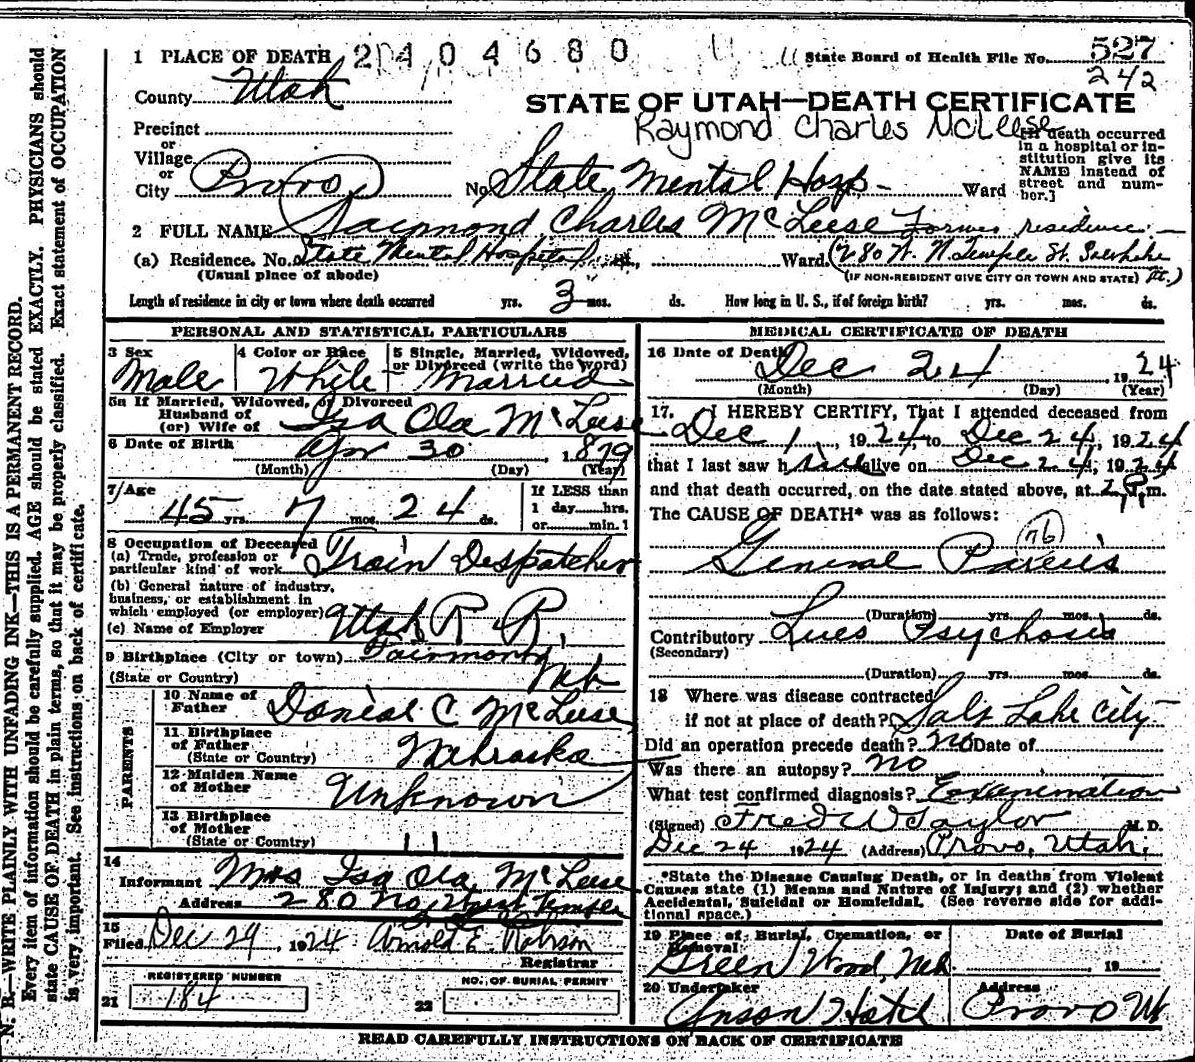 1 PLACE OF DEATH 2404680 State Board of Health File No. 527
242
County Utah
STATE OF UTAH—DEATH CERTIFICATE
Raymond Charles McLeese
Precinct
or
Village
or
City Provo No. State Mental Hosp. Ward
[If death occurred
in a hospital or in-
stitution give its
NAME instead of
street and num-
ber.]
2 FULL NAME Raymond Charles McLeese Former residence.—
(a) Residence. No. State Mental Hospital St., Ward. (280 W. N. Temple St. Salt Lake
(Usual place of abode) (IF NON-RESIDENT GIVE CITY OR TOWN AND STATE)
Length of residence in city or town where death occurred yrs. 3 mos. ds. How long in U. S., if of foreign birth? yrs. mos. ds.
PERSONAL AND STATISTICAL PARTICULARS
3 Sex 4 Color or Race 5 Single, Married, Widowed,
or Divorced (write the word)
Male White Married
5a If Married, Widowed, or Divorced
Husband of
(or) Wife of Isa Ola McLeese
6 Date of Birth Apr 30, 1879
(Month) (Day) (Year)
7 Age 45 yrs. 7 mos. 24 ds.
If LESS than
1 day hrs.
or min.
8 Occupation of Deceased
(a) Trade, profession or
particular kind of work Train Despatcher
(b) General nature of industry,
business, or establishment in
which employed (or employer) Utah R R.
(c) Name of Employer
9 Birthplace (City or town) Fairmont,
(State or Country) Neb.
PARENTS
10 Name of
Father Danial C McLeese
11 Birthplace
of Father
(State or Country) Nebraska
12 Maiden Name
of Mother Unknown
13 Birthplace
of Mother
(State or Country) 11
14
Informant Mrs Isa Ola McLeese
Address 280 No. West Temple
15
Filed Dec 29, 1924 Arnold E. Robison
Registrar
REGISTERED NUMBER
21 184
NO. OF BURIAL PERMIT
22
MEDICAL CERTIFICATE OF DEATH
16 Date of Death Dec 24 1924
(Month) (Day) (Year)
17. I HEREBY CERTIFY, That I attended deceased from
Dec 1, 1924, to Dec 24, 1924
that I last saw h alive on Dec 24, 1924
and that death occurred, on the date stated above, at 2 P.m.
The CAUSE OF DEATH* was as follows:
76
General Paresis
(Duration) yrs. mos. ds.
Contributory Lues Psychosis
(Secondary)
(Duration) yrs. mos. ds.
18 Where was disease contracted
if not at place of death? Salt Lake City
Did an operation precede death? No Date of
Was there an autopsy? No
What test confirmed diagnosis? Examination
(Signed) Fred W Taylor M. D.
Dec 24 1924 (Address) Provo, Utah.
*State the Disease Causing Death, or in deaths from Violent
Causes state (1) Means and Nature of Injury; and (2) whether
Accidental, Suicidal or Homicidal. (See reverse side for addi-
tional space.)
19 Place of Burial, Cremation, or Removal Date of Burial
Green Wood, Neb. 19
20 Undertaker Address
Anson Hatch Provo Ut
READ CAREFULLY INSTRUCTIONS ON BACK OF CERTIFICATE
N. B.—WRITE PLAINLY WITH UNFADING INK—THIS IS A PERMANENT RECORD.
Every item of information should be carefully supplied. AGE should be stated EXACTLY. PHYSICIANS should
state CAUSE OF DEATH in plain terms, so that it may be properly classified. Exact statement of OCCUPATION
is very important. See instructions on back of certificate.